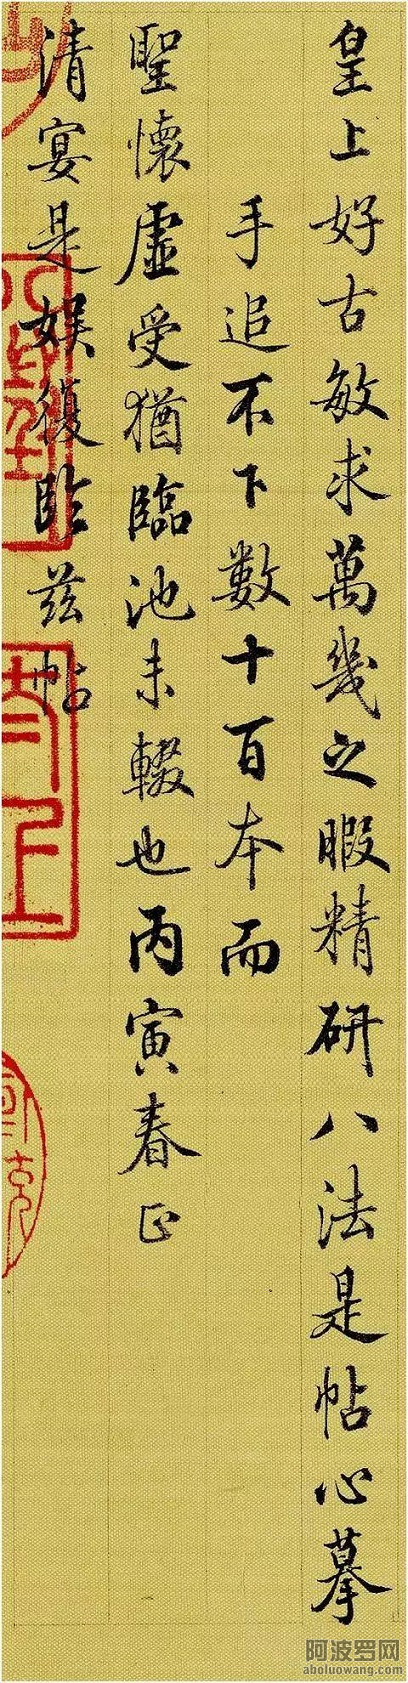 皇上好古敏求萬幾之暇精研八法是帖心摹
手追不下數十百本而
聖懷虛受猶臨池未輟也丙寅春正
清宴是娱復臨兹帖
阿波罗网
aboluowang.com